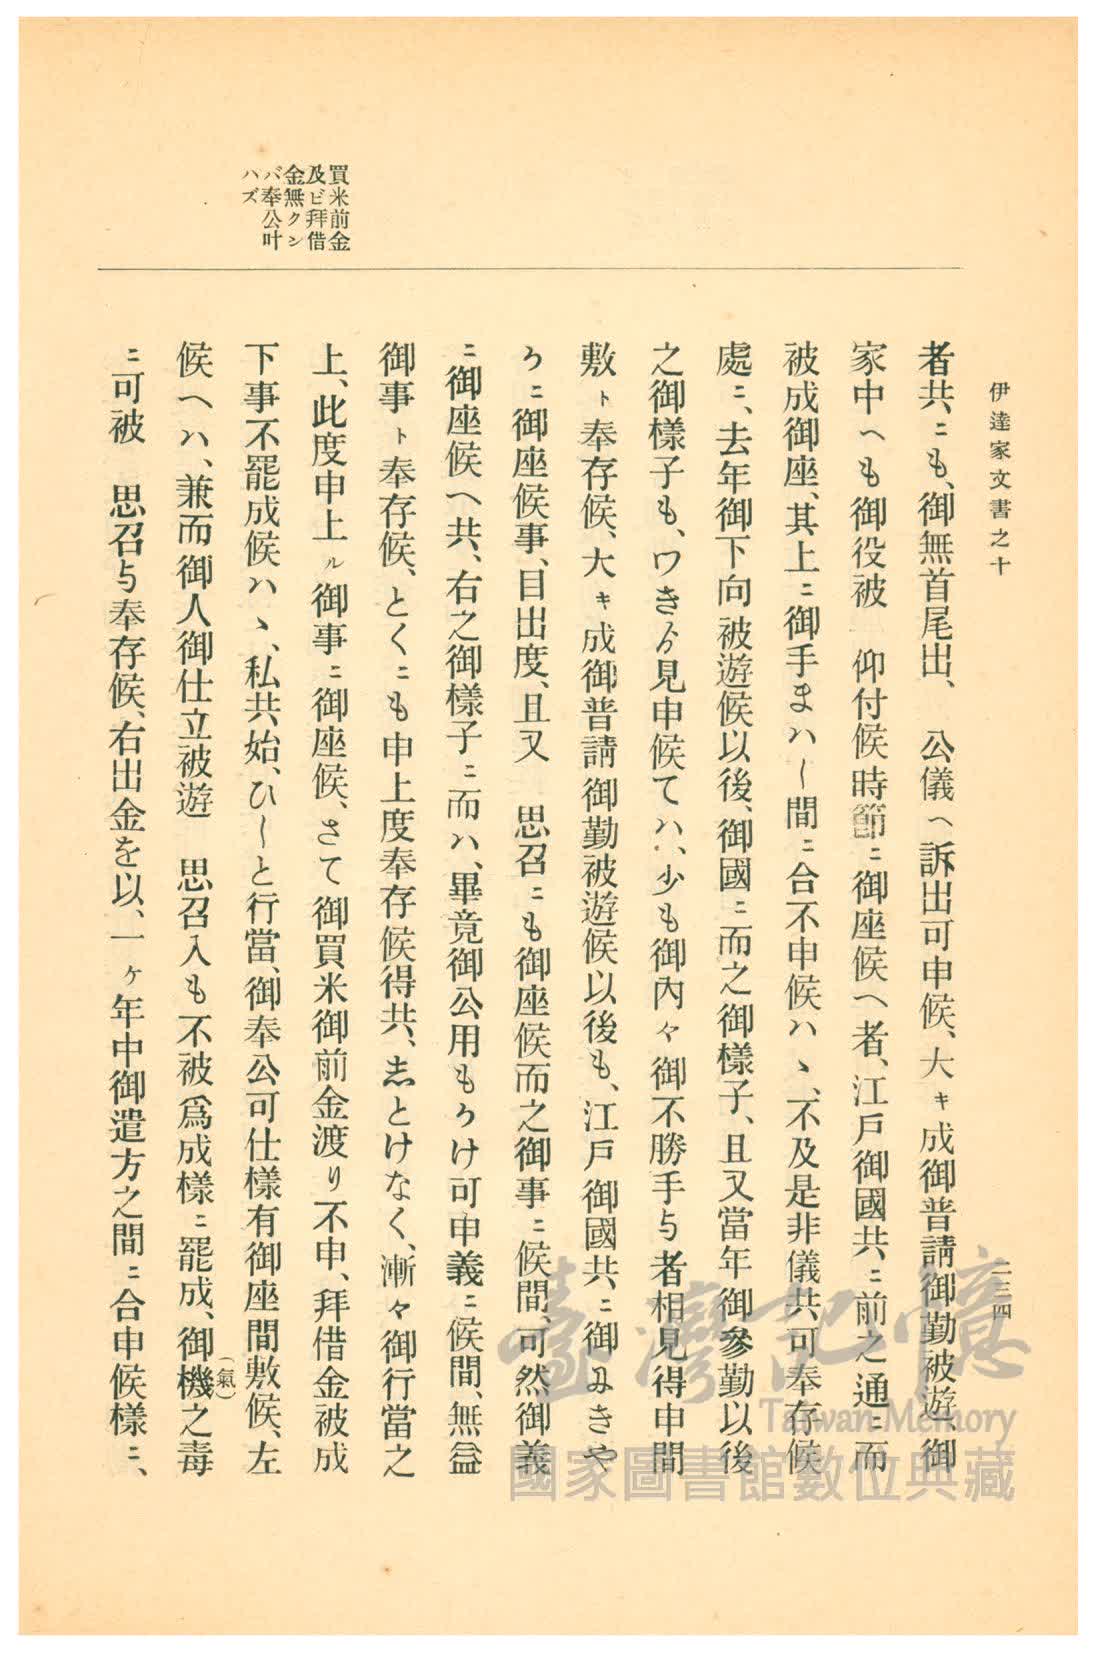 伊達家文書之十
二三四
買米前金
及ビ拜借
金無クン
バ奉公叶
ハズ
者共ニも、御無首尾出、　公儀ヘ訴出可申候、大キ成御普請御勤被遊、御
家中ヘも御役被　仰付候時節ニ御座候ヘ者、江戸御國共ニ前之通ニ而
被成御座、其上ニ御手まハし間ニ合不申候ハヽ、不及是非儀共可奉存候
處ニ、去年御下向被遊候以後、御國ニ而之御樣子、且又當年御參勤以後
之御樣子も、ワきゟ見申候てハ、少も御內々御不勝手与者相見得申間
敷ト奉存候、大キ成御普請御勤被遊候以後も、江戸御國共ニ御みきや
うニ御座候事、目出度、且又　思召ニも御座候而之御事ニ候間、可然御義
ニ御座候ヘ共、右之御樣子ニ而ハ、畢竟御公用もうけ可申義ニ候間、無益
御事ト奉存候、とくニも申上度奉存候得共、志とけなく、漸々御行當之
上、此度申上ル御事ニ御座候、さて御買米御前金渡り不申、拜借金被成
下事不罷成候ハヽ、私共始、ひしと行當、御奉公可仕樣有御座間敷候、左
候ヘハ、兼而御人御仕立被遊　思召入も不被爲成樣ニ罷成、御機（氣）之毒
ニ可被　思召与奉存候、右出金を以、一ヶ年中御遣方之間ニ合申候樣ニ、
臺灣記憶
Taiwan Memory
國家圖書館數位典藏